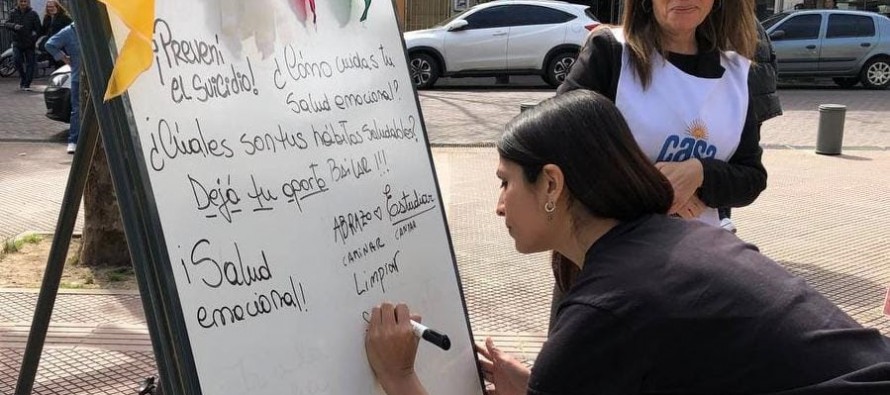 ¡Prevení
el suicidio!
¿Cómo cuidas tu
Salud emocional?
¿Cúales son tus hábitos saludables?
Dejá tu aporte
BAILAR!!!
¡Salud
emocional!
ABRAZO
Estudiar
CAMINAR
CANTAR
Limpiar
S
CASA